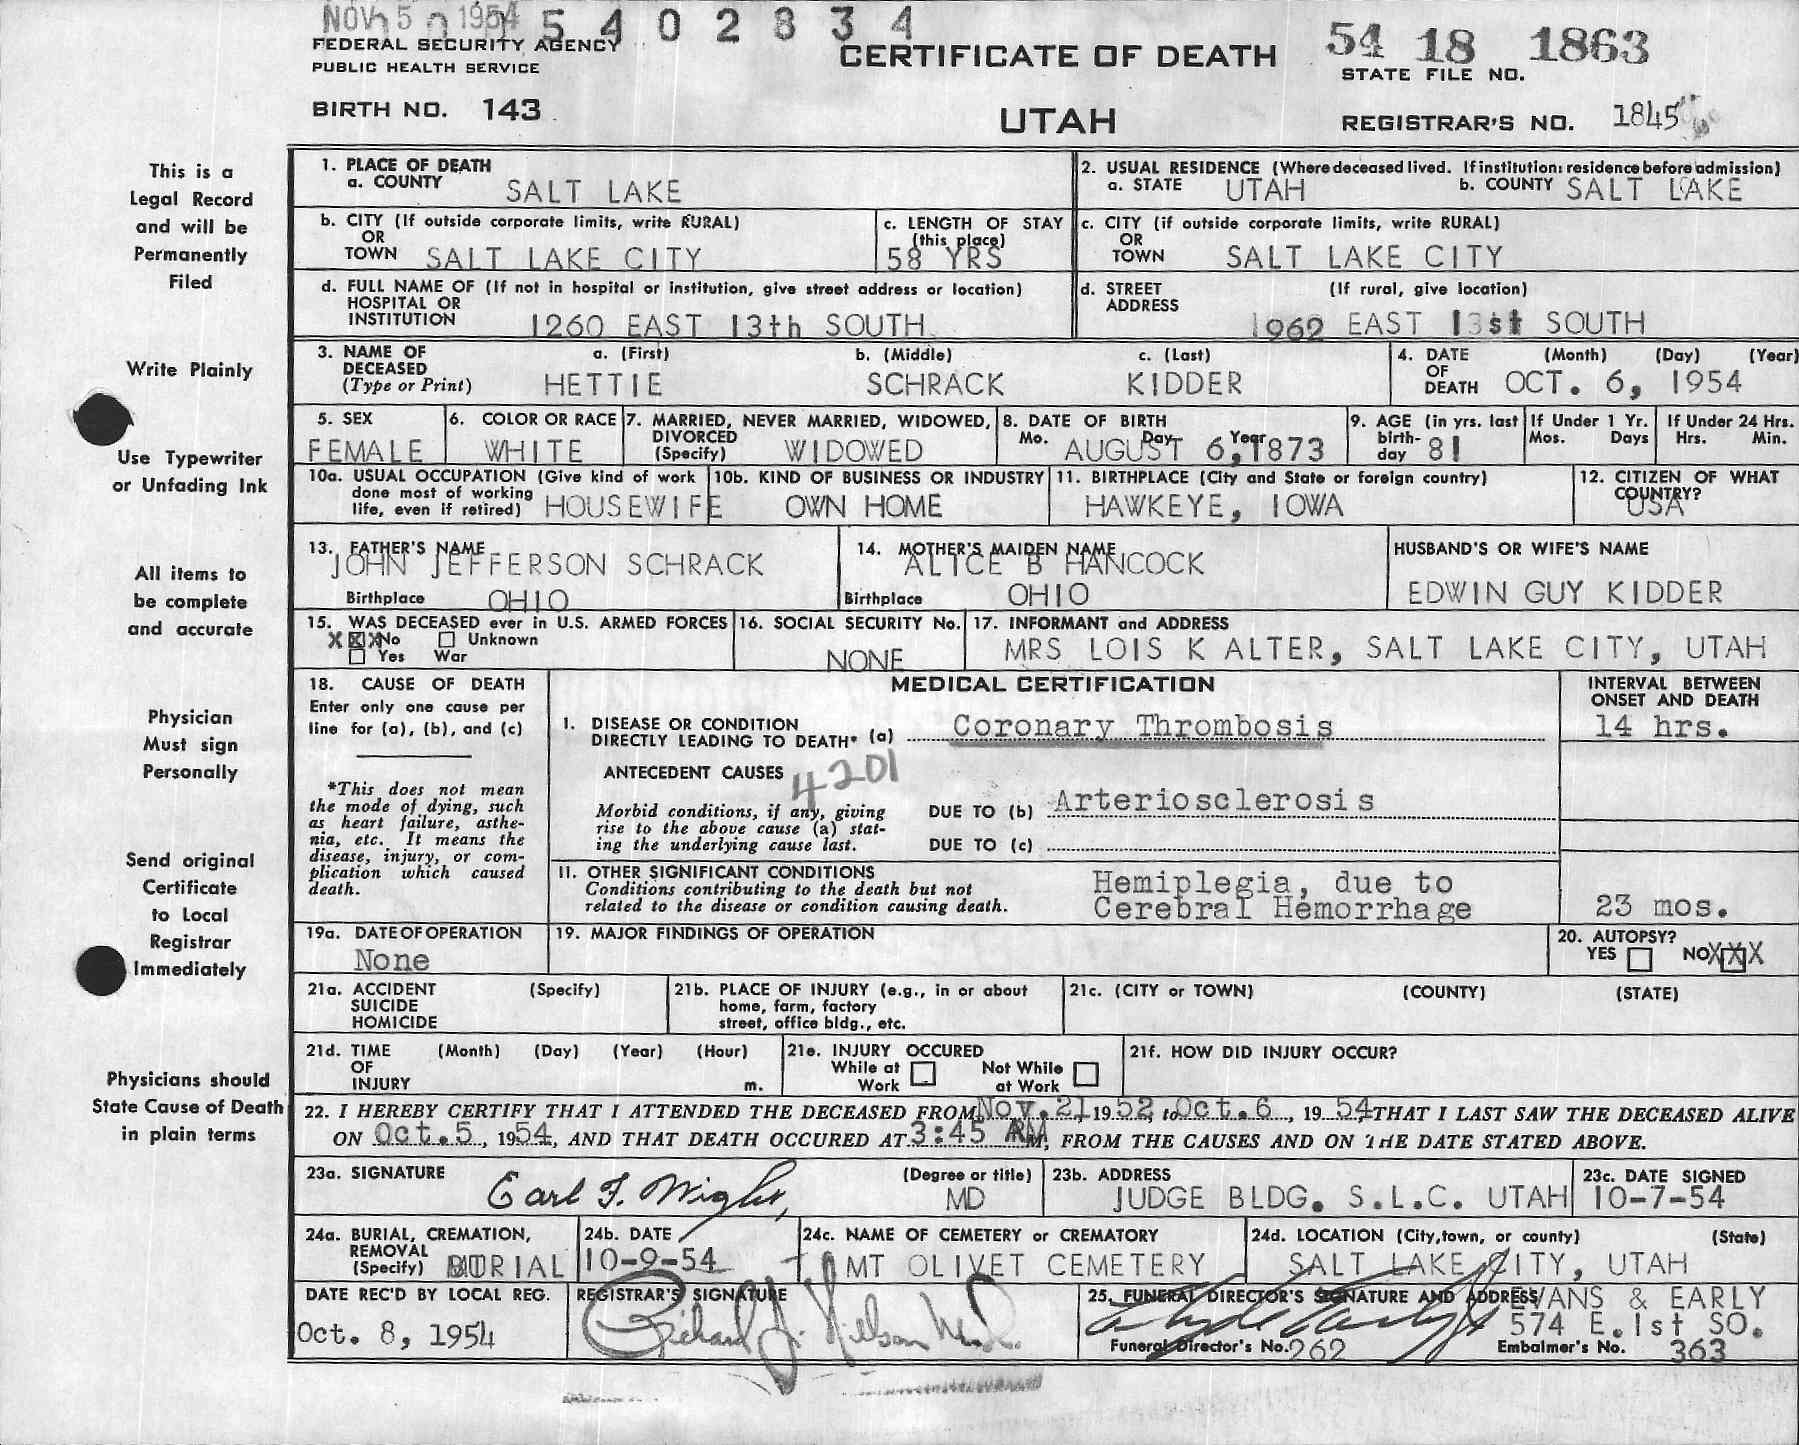 NOV 5 1954 5 4 0 2 8 3 4
FEDERAL SECURITY AGENCY
PUBLIC HEALTH SERVICE
CERTIFICATE OF DEATH
54 18 1863
STATE FILE NO.
BIRTH NO. 143
UTAH
REGISTRAR'S NO. 1845
This is a
Legal Record
and will be
Permanently
Filed
Write Plainly
Use Typewriter
or Unfading Ink
All items to
be complete
and accurate
Physician
Must sign
Personally
Send original
Certificate
to Local
Registrar
Immediately
Physicians should
State Cause of Death
in plain terms
1. PLACE OF DEATH
a. COUNTY SALT LAKE
2. USUAL RESIDENCE (Where deceased lived. If institution: residence before admission)
a. STATE UTAH b. COUNTY SALT LAKE
b. CITY (If outside corporate limits, write RURAL)
OR
TOWN SALT LAKE CITY
c. LENGTH OF STAY
(this place)
58 YRS
c. CITY (if outside corporate limits, write RURAL)
OR
TOWN SALT LAKE CITY
d. FULL NAME OF (If not in hospital or institution, give street address or location)
HOSPITAL OR
INSTITUTION 1260 EAST 13th SOUTH
d. STREET (If rural, give location)
ADDRESS 1962 EAST 13st SOUTH
3. NAME OF
DECEASED
(Type or Print)
a. (First) b. (Middle) c. (Last)
HETTIE SCHRACK KIDDER
4. DATE (Month) (Day) (Year)
OF
DEATH OCT. 6, 1954
5. SEX
FEMALE
6. COLOR OR RACE
WHITE
7. MARRIED, NEVER MARRIED, WIDOWED,
DIVORCED
(Specify) WIDOWED
8. DATE OF BIRTH
Mo. Day Year
AUGUST 6, 1873
9. AGE (in yrs. last
birth-
day 81
If Under 1 Yr.
Mos. Days
If Under 24 Hrs.
Hrs. Min.
10a. USUAL OCCUPATION (Give kind of work
done most of working
life, even if retired) HOUSEWIFE
10b. KIND OF BUSINESS OR INDUSTRY
OWN HOME
11. BIRTHPLACE (City and State or foreign country)
HAWKEYE, IOWA
12. CITIZEN OF WHAT
COUNTRY?
USA
13. FATHER'S NAME
JOHN JEFFERSON SCHRACK
Birthplace OHIO
14. MOTHER'S MAIDEN NAME
ALICE B HANCOCK
Birthplace OHIO
HUSBAND'S OR WIFE'S NAME
EDWIN GUY KIDDER
15. WAS DECEASED ever in U.S. ARMED FORCES
X X X No Unknown
Yes War
16. SOCIAL SECURITY No.
NONE
17. INFORMANT and ADDRESS
MRS LOIS K ALTER, SALT LAKE CITY, UTAH
18. CAUSE OF DEATH
Enter only one cause per
line for (a), (b), and (c)
*This does not mean
the mode of dying, such
as heart failure, asthe-
nia, etc. It means the
disease, injury, or com-
plication which caused
death.
MEDICAL CERTIFICATION
INTERVAL BETWEEN
ONSET AND DEATH
1. DISEASE OR CONDITION
DIRECTLY LEADING TO DEATH* (a) Coronary Thrombosis 14 hrs.
ANTECEDENT CAUSES 4201
Morbid conditions, if any, giving
rise to the above cause (a) stat-
ing the underlying cause last.
DUE TO (b) Arteriosclerosis
DUE TO (c)
11. OTHER SIGNIFICANT CONDITIONS
Conditions contributing to the death but not
related to the disease or condition causing death.
Hemiplegia, due to
Cerebral Hemorrhage 23 mos.
19a. DATE OF OPERATION
None
19. MAJOR FINDINGS OF OPERATION
20. AUTOPSY?
YES NO XXX
21a. ACCIDENT (Specify)
SUICIDE
HOMICIDE
21b. PLACE OF INJURY (e.g., in or about
home, farm, factory
street, office bldg., etc.
21c. (CITY or TOWN) (COUNTY) (STATE)
21d. TIME (Month) (Day) (Year) (Hour)
OF
INJURY m.
21e. INJURY OCCURED
While at Work Not While at Work
21f. HOW DID INJURY OCCUR?
22. I HEREBY CERTIFY THAT I ATTENDED THE DECEASED FROM Nov. 21 1952, to Oct. 6, 1954, THAT I LAST SAW THE DECEASED ALIVE
ON Oct. 5, 1954, AND THAT DEATH OCCURED AT 3:45 AM, FROM THE CAUSES AND ON THE DATE STATED ABOVE.
23a. SIGNATURE (Degree or title)
Earl F. Wight, MD
23b. ADDRESS
JUDGE BLDG. S.L.C. UTAH
23c. DATE SIGNED
10-7-54
24a. BURIAL, CREMATION,
REMOVAL
(Specify) BURIAL
24b. DATE
10-9-54
24c. NAME OF CEMETERY or CREMATORY
MT OLIVET CEMETERY
24d. LOCATION (City, town, or county) (State)
SALT LAKE CITY, UTAH
DATE REC'D BY LOCAL REG.
Oct. 8, 1954
REGISTRAR'S SIGNATURE
Richard J. Nielson M.D.
25. FUNERAL DIRECTOR'S SIGNATURE AND ADDRESS
EVANS & EARLY
574 E. 1st SO.
Funeral Director's No. 262
Embalmer's No. 363